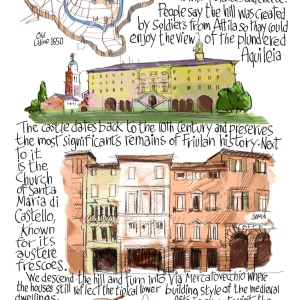 People say the hill was created
by Soldiers from Attila so they could
enjoy the view of the plundered
Aquileia
Old
Udine 1650
The castle dates back to the 10th century and preserves
the most significants remains of Friulan history. Next
to it
is the
Shurch
of Santa
Maria di
Castello,
known
for its
austere
frescoes.
We descend the hill and turn into Via Mercatovecchio where
the houses still reflect the tipical lower building style of the medieval
dwellings